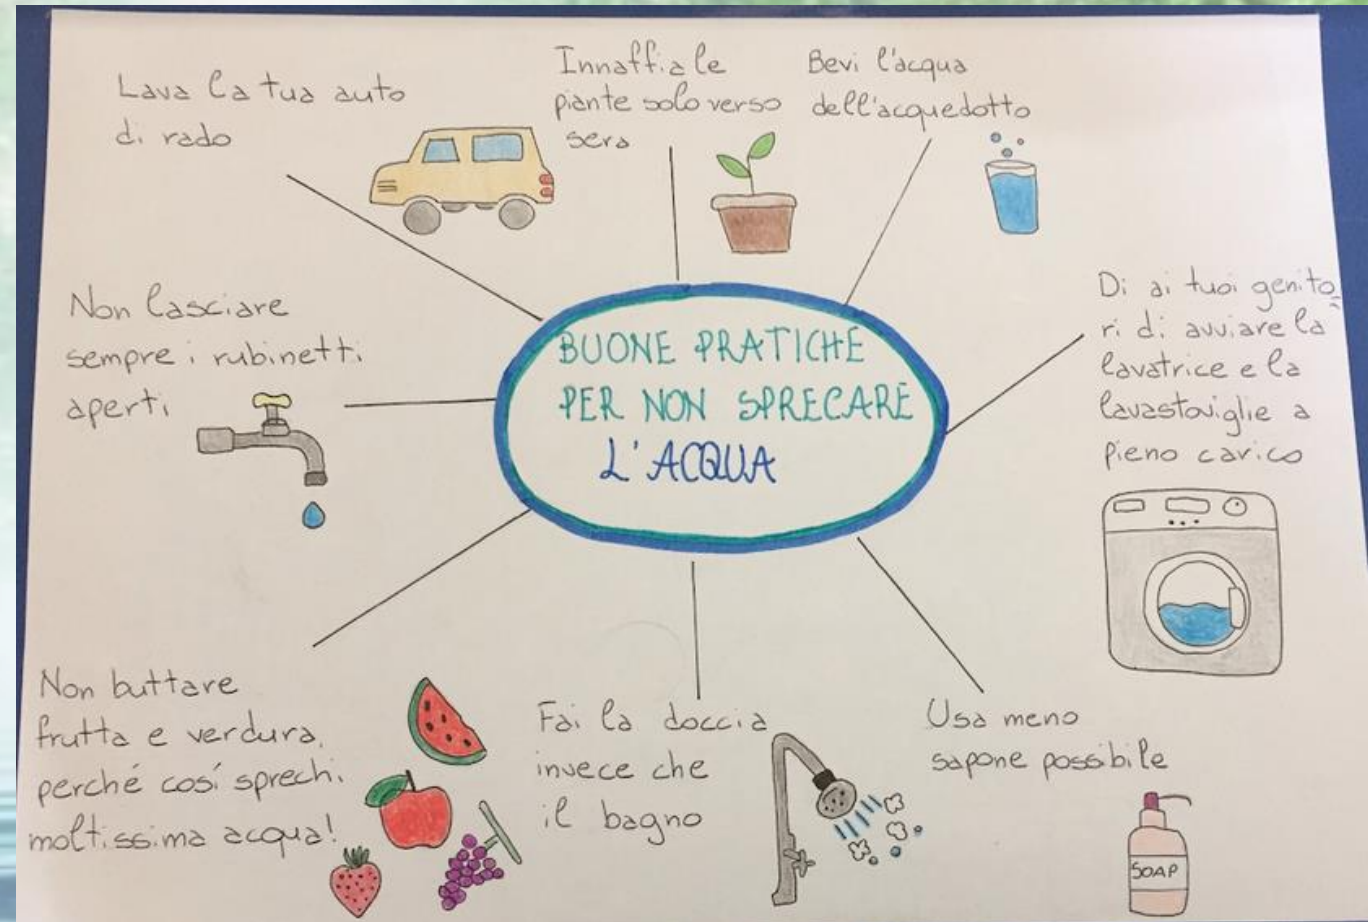 Lava la tua auto
di rado
Innaffia le
piante solo verso
sera
Bevi l'acqua
dell'acquedotto
Non lasciare
sempre i rubinetti
aperti
BUONE PRATICHE
PER NON SPRECARE
L'ACQUA
Di ai tuoi genito
ri di avviare la
lavatrice e la
lavastoviglie a
pieno carico
Non buttare
frutta e verdura,
perché così sprechi
moltissima acqua!
Fai la doccia
invece che
il bagno
Usa meno
sapone possibile
SOAP